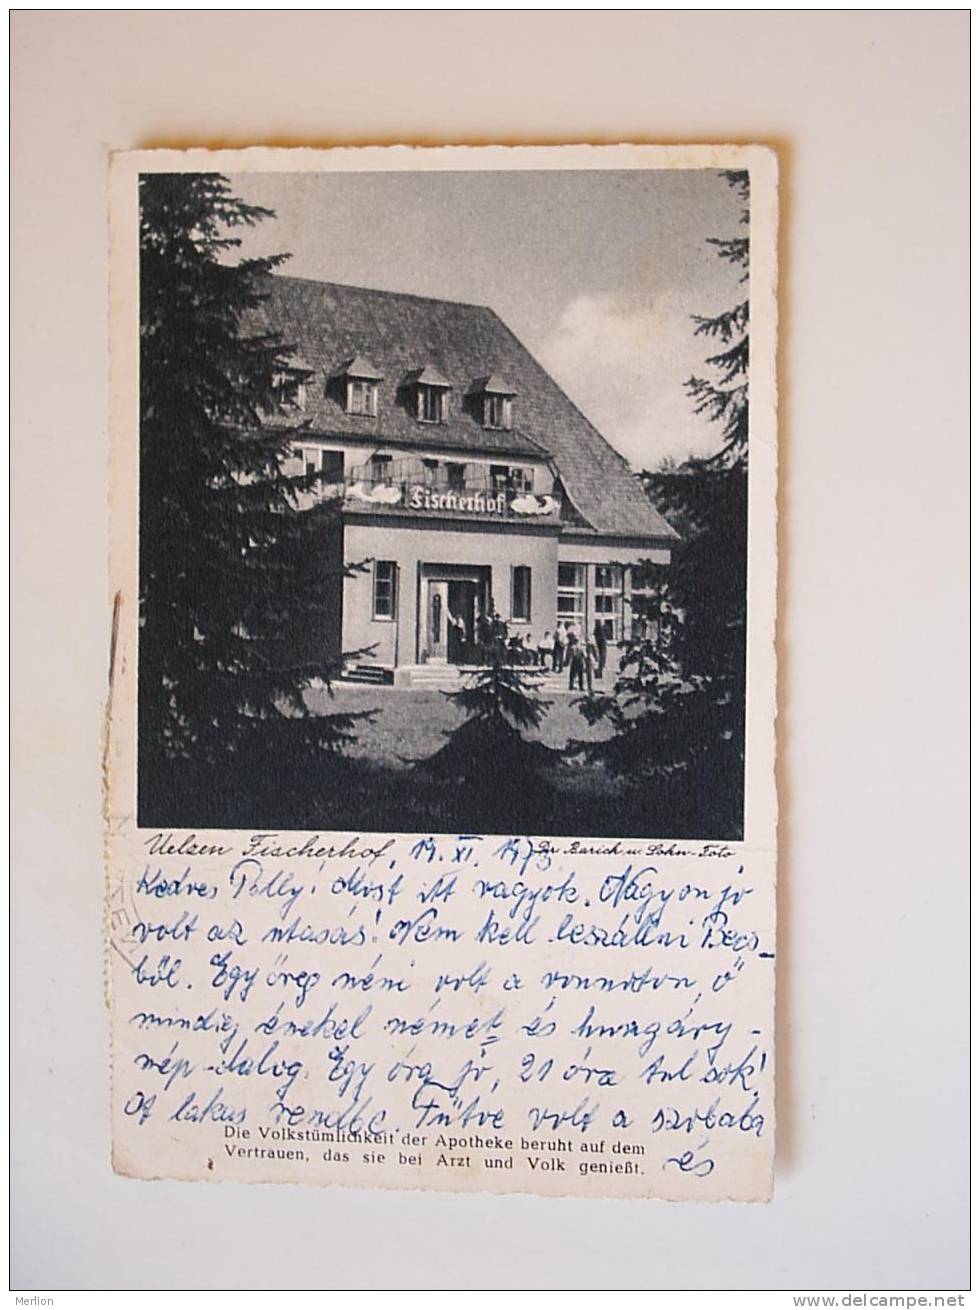 Fischerhof
Uelzen Fischerhof, 19. XI. 197
Dr. Barich u. Sohn-Foto
Kedves Polly! Most itt vagyok. Nagyon jó
volt az utasás! Nem kell leszállni Becs-
ből. Egy öreg néni volt a vonnaton, ő
mindig énekel német és hungáry-
nép-dalog. Egy óra jó, 21 óra tul sok!
A lakas rendbe. Fütve volt a szobaba
és
Die Volkstümlichkeit der Apotheke beruht auf dem
Vertrauen, das sie bei Arzt und Volk genießt.
Merlion
www.delcampe.net